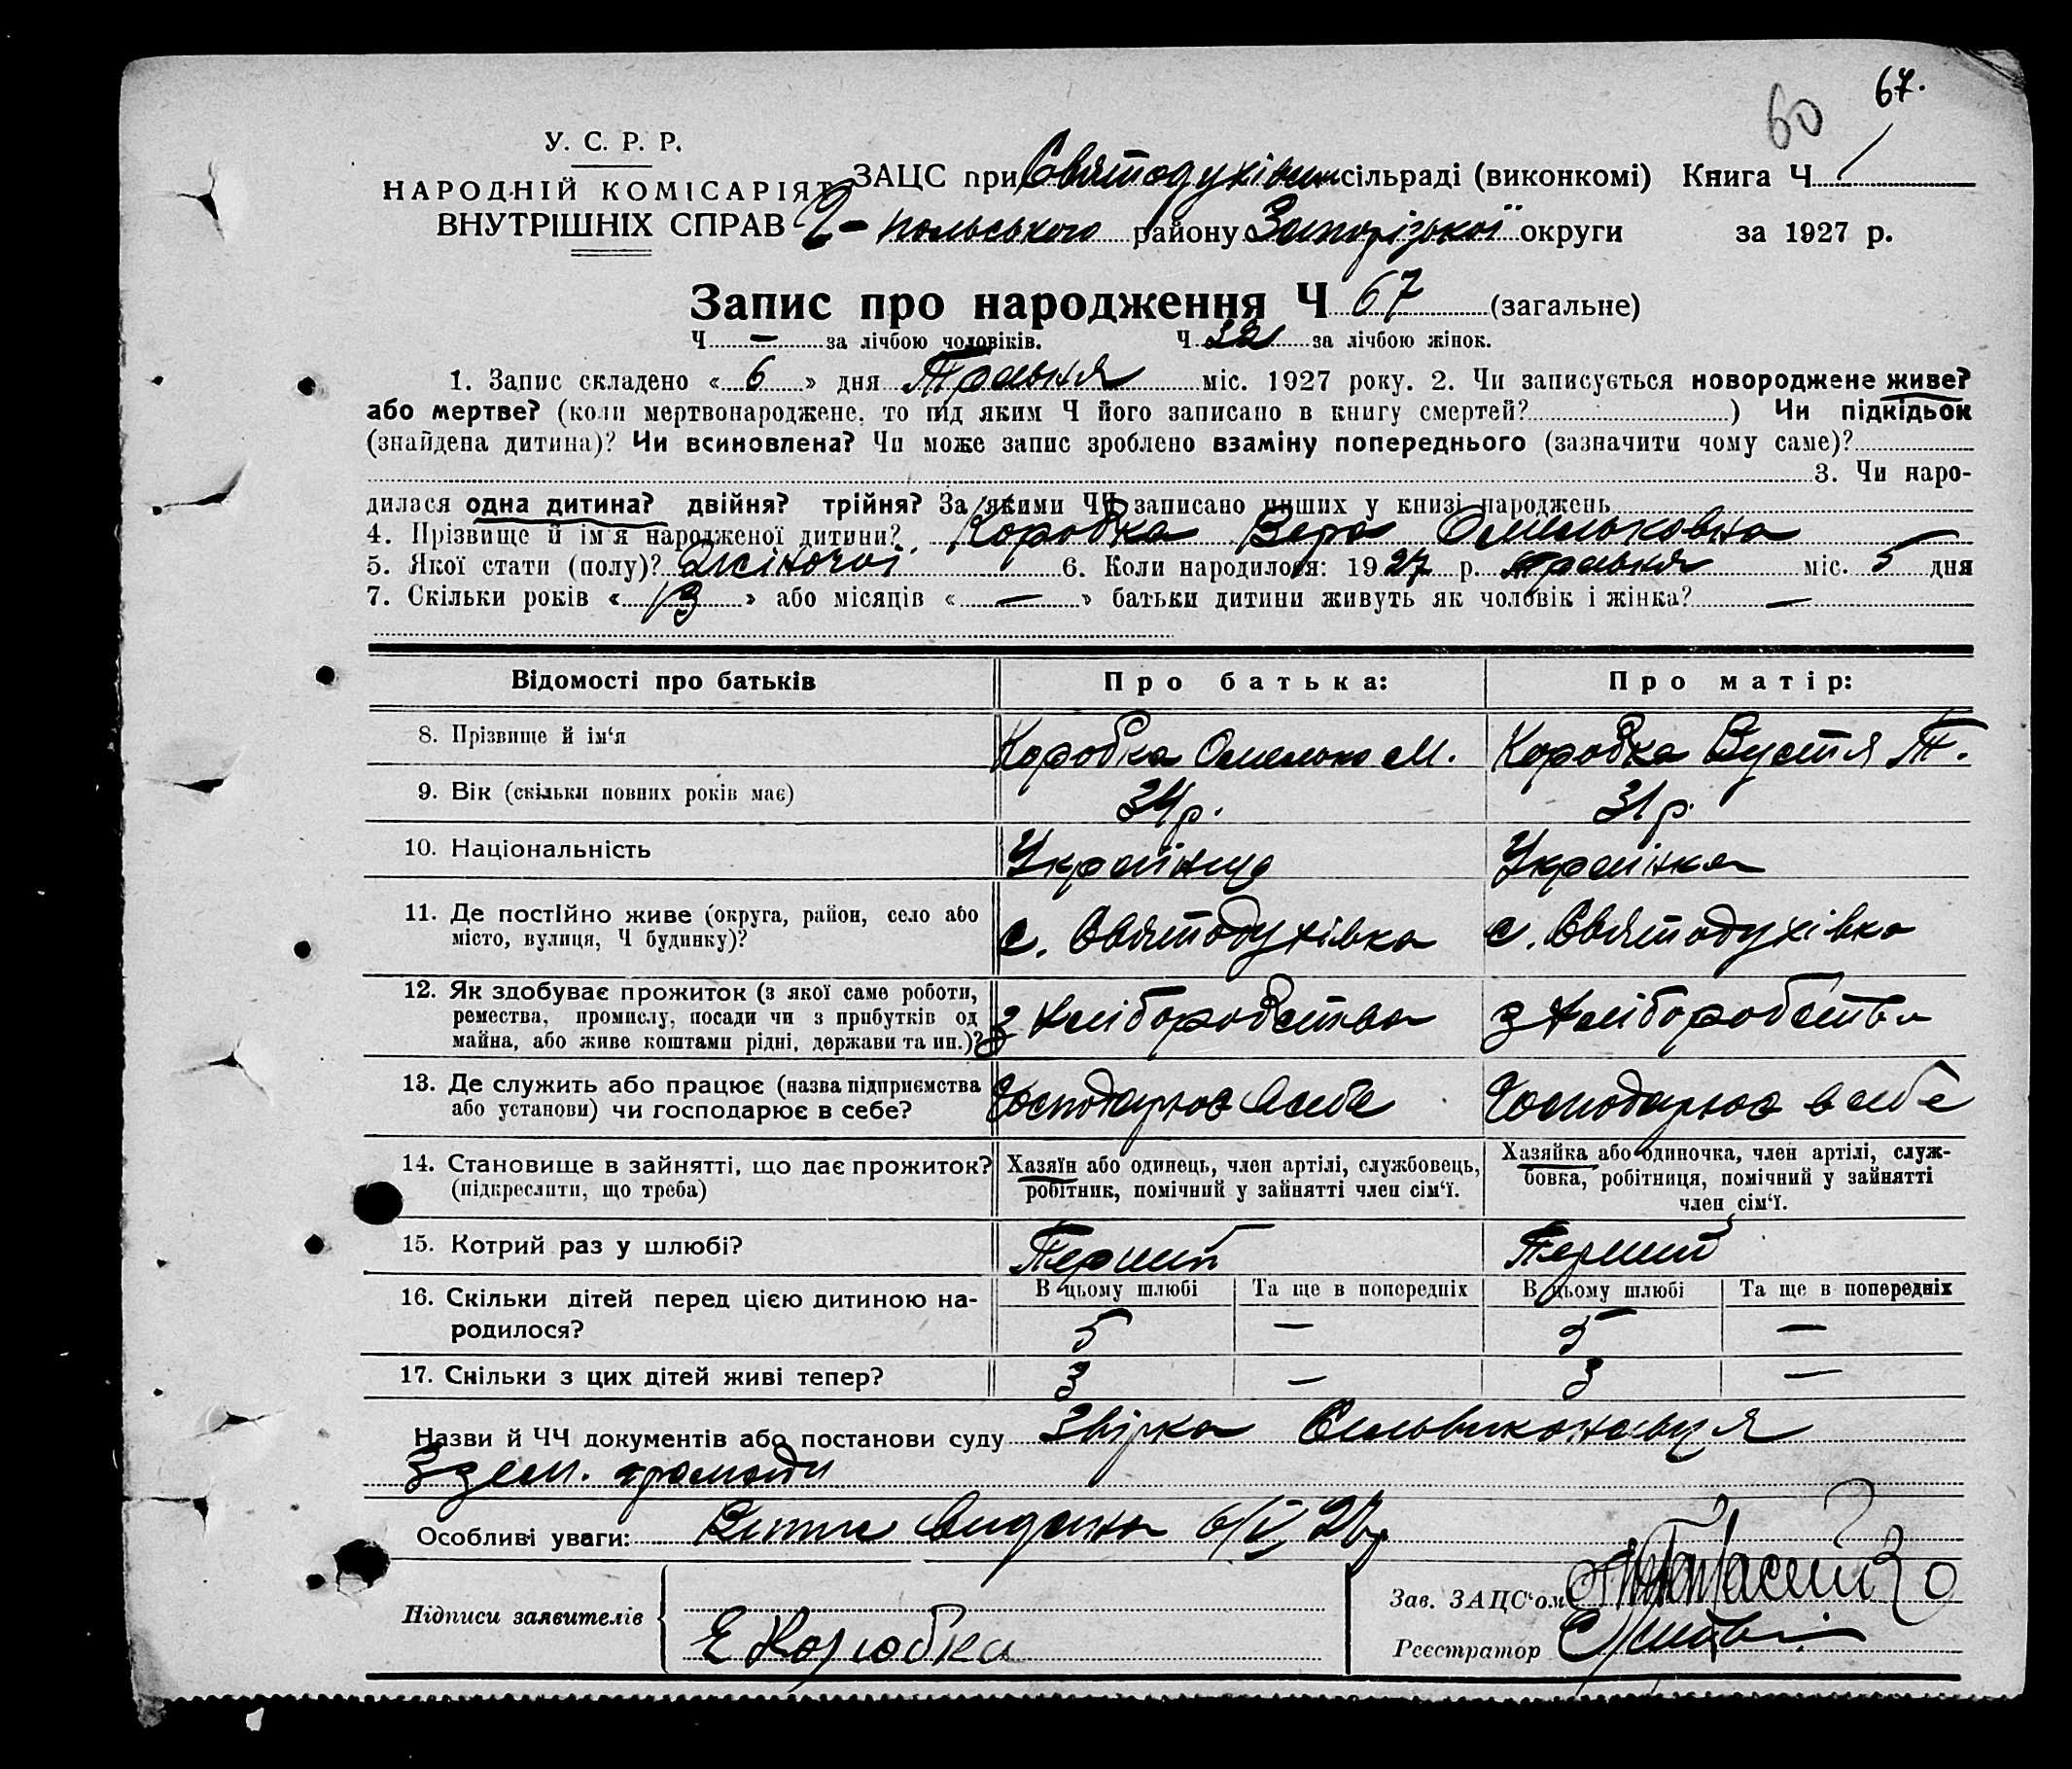 67.
60
У. С. Р. Р.
НАРОДНІЙ КОМІСАРІЯТ
ВНУТРІШНІХ СПРАВ
ЗАЦС при Святодухівськ. сільраді (виконкомі) Книга Ч. 1
польського району Запорізької округи за 1927 р.
Запис про народження Ч 67 (загальне)
Ч — за лічбою чоловіків. Ч за лічбою жінок.
1. Запис складено « 6 » дня Травня міс. 1927 року. 2. Чи записується новороджене живе?
або мертве? (коли мертвонароджене, то під яким Ч його записано в книгу смертей? ) Чи підкідьок
(знайдена дитина)? Чи всиновлена? Чи може запис зроблено взаміну попереднього (зазначити чому саме)?
3. Чи наро-
дилася одна дитина? двійня? трійня? За якими ЧЧ записано инших у книзі народжень
4. Прізвище й ім'я народженої дитини? Коробка Вера Омельковна
5. Якої стати (полу)? Жіночої 6. Коли народилося: 1927 р. травня міс. 5 дня
7. Скільки років « 13 » або місяців « — » батьки дитини живуть як чоловік і жінка? —
Відомості про батьків
Про батька:
Про матір:
8. Прізвище й ім'я
Коробка Омелько М.
Коробка Вустя Т.
9. Вік (скільки повних років має)
34 р.
31 р.
10. Національність
Українць
Українка
11. Де постійно живе (округа, район, село або
місто, вулиця, Ч будинку)?
с. Святодухівка
с. Святодухівка
12. Як здобуває прожиток (з якої саме роботи,
ремества, промислу, посади чи з прибутків од
майна, або живе коштами рідні, держави та ин.)?
з хліборобства
з хліборобства
13. Де служить або працює (назва підприємства
або установи) чи господарює в себе?
Господарює в себе
Господарює в себе
14. Становище в зайнятті, що дає прожиток?
(підкреслити, що треба)
Хазяїн або одинець, член артілі, службовець,
робітник, помічний у зайнятті член сім'ї.
Хазяйка або одиночка, член артілі, служ-
бовка, робітниця, помічний у зайнятті
член сім'ї.
15. Котрий раз у шлюбі?
Перший
Перший
16. Скільки дітей перед цією дитиною на-
родилося?
В цьому шлюбі
Та ще в попередніх
В цьому шлюбі
Та ще в попередніх
5 — 5 —
17. Скільки з цих дітей живі тепер?
3 — 3 —
Назви й ЧЧ документів або постанови суду Звірка Сельвиконавця
Ззем. громади
Особливі уваги: Випис видана 6/V 27р
Підписи заявителів
Е Коробка
Зав. ЗАЦС'ом
Реєстратор